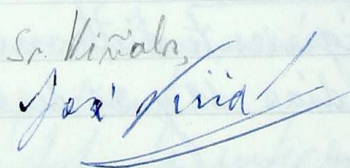 Sr. Viñals,
José Viña